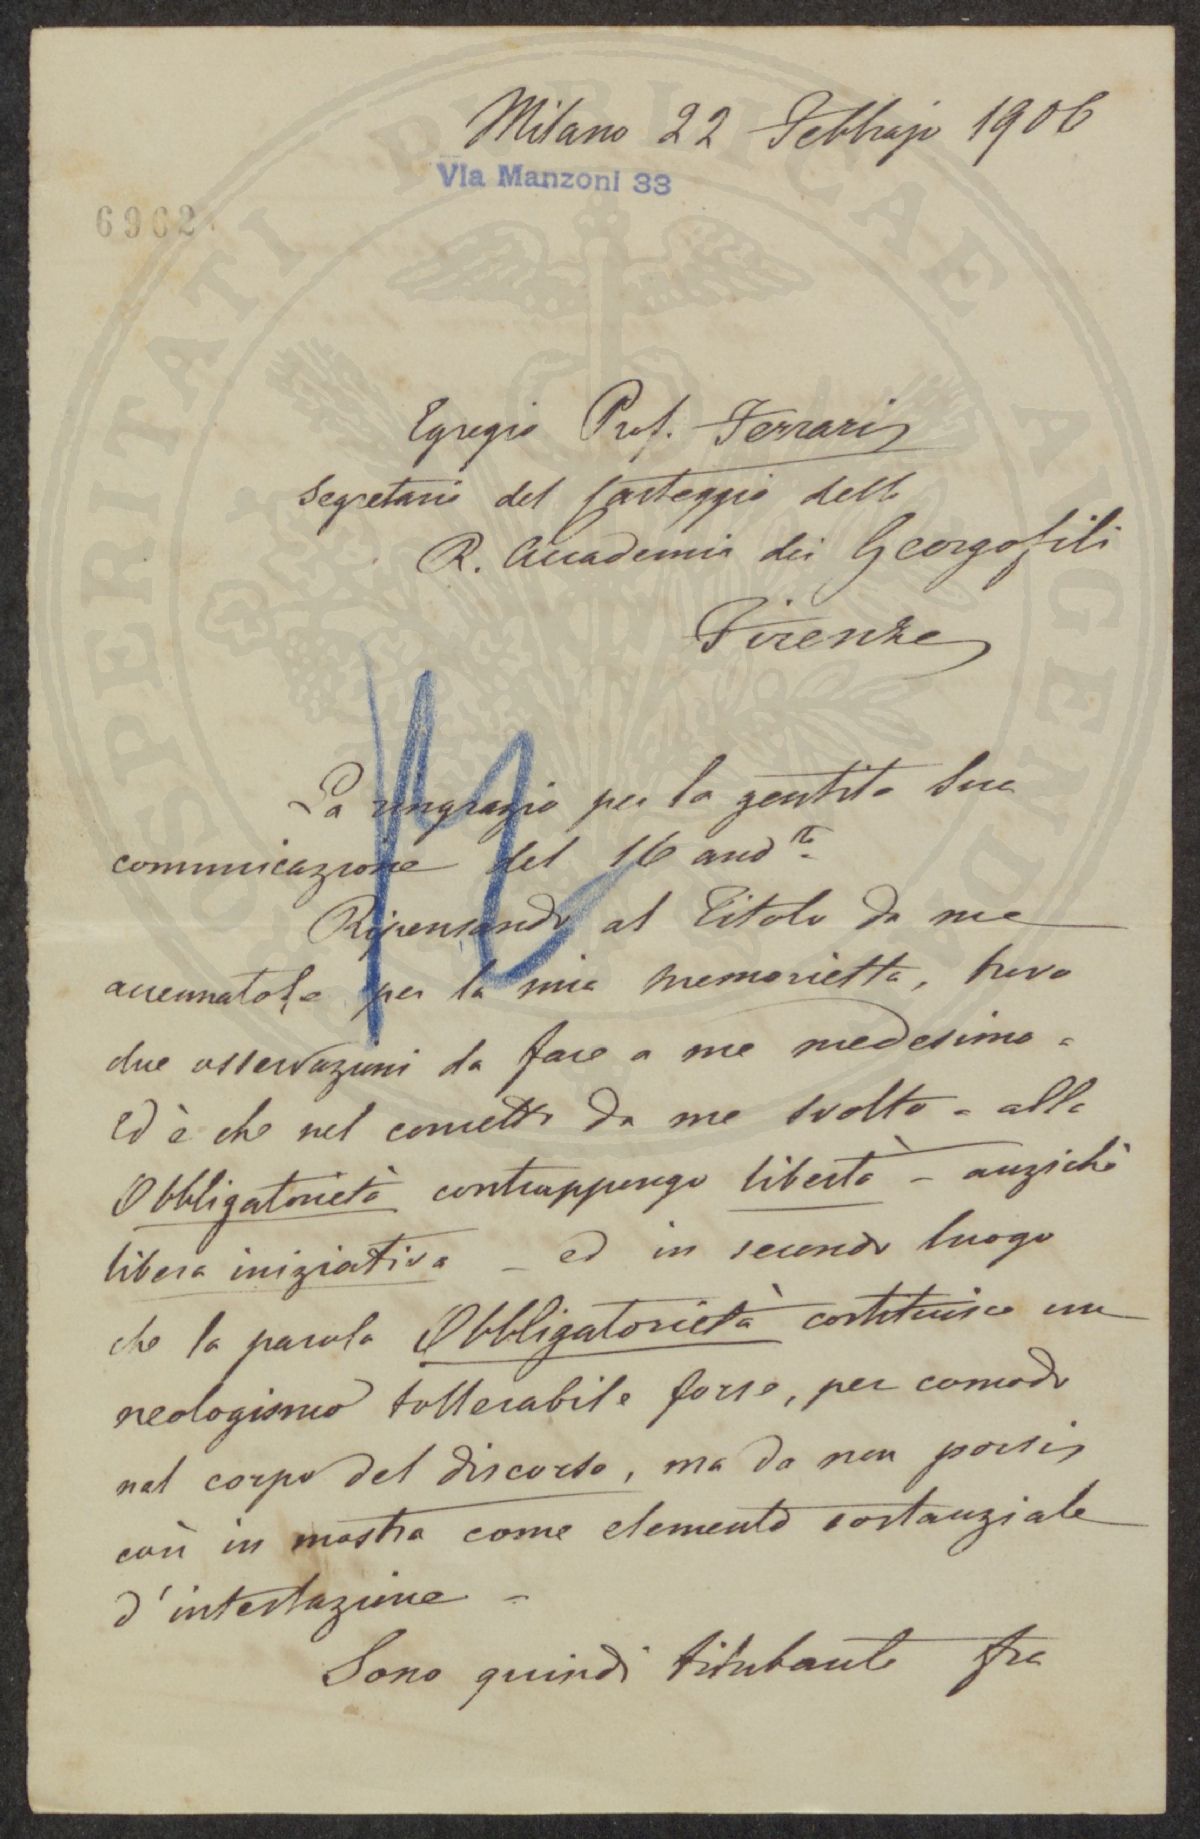 Milano 22 Febbrajo 1906
Via Manzoni 33
6962
PROSPERITATI PVBLICAE AVGENDAE
Egregio Prof. Ferrari
Segretario del Carteggio della
R. Accademia dei Georgofili
Firenze
La ringrazio per la gentile Sua
comunicazione del 16 and.te
Ripensando al Titolo da me
accennatole per la mia memorietta, trovo
due osservazioni da fare a me medesimo -
ed è che nel concetto da me svolto - alla
Obbligatorietà contrappongo libertà - anzichè
libera iniziativa - ed in secondo luogo
che la parola Obbligatorietà costituisce un
neologismo tollerabile forse, per comodo
nel corpo del discorso, ma da non porsi
così in mostra come elemento sostanziale
d'intestazione -
Sono quindi titubante fra